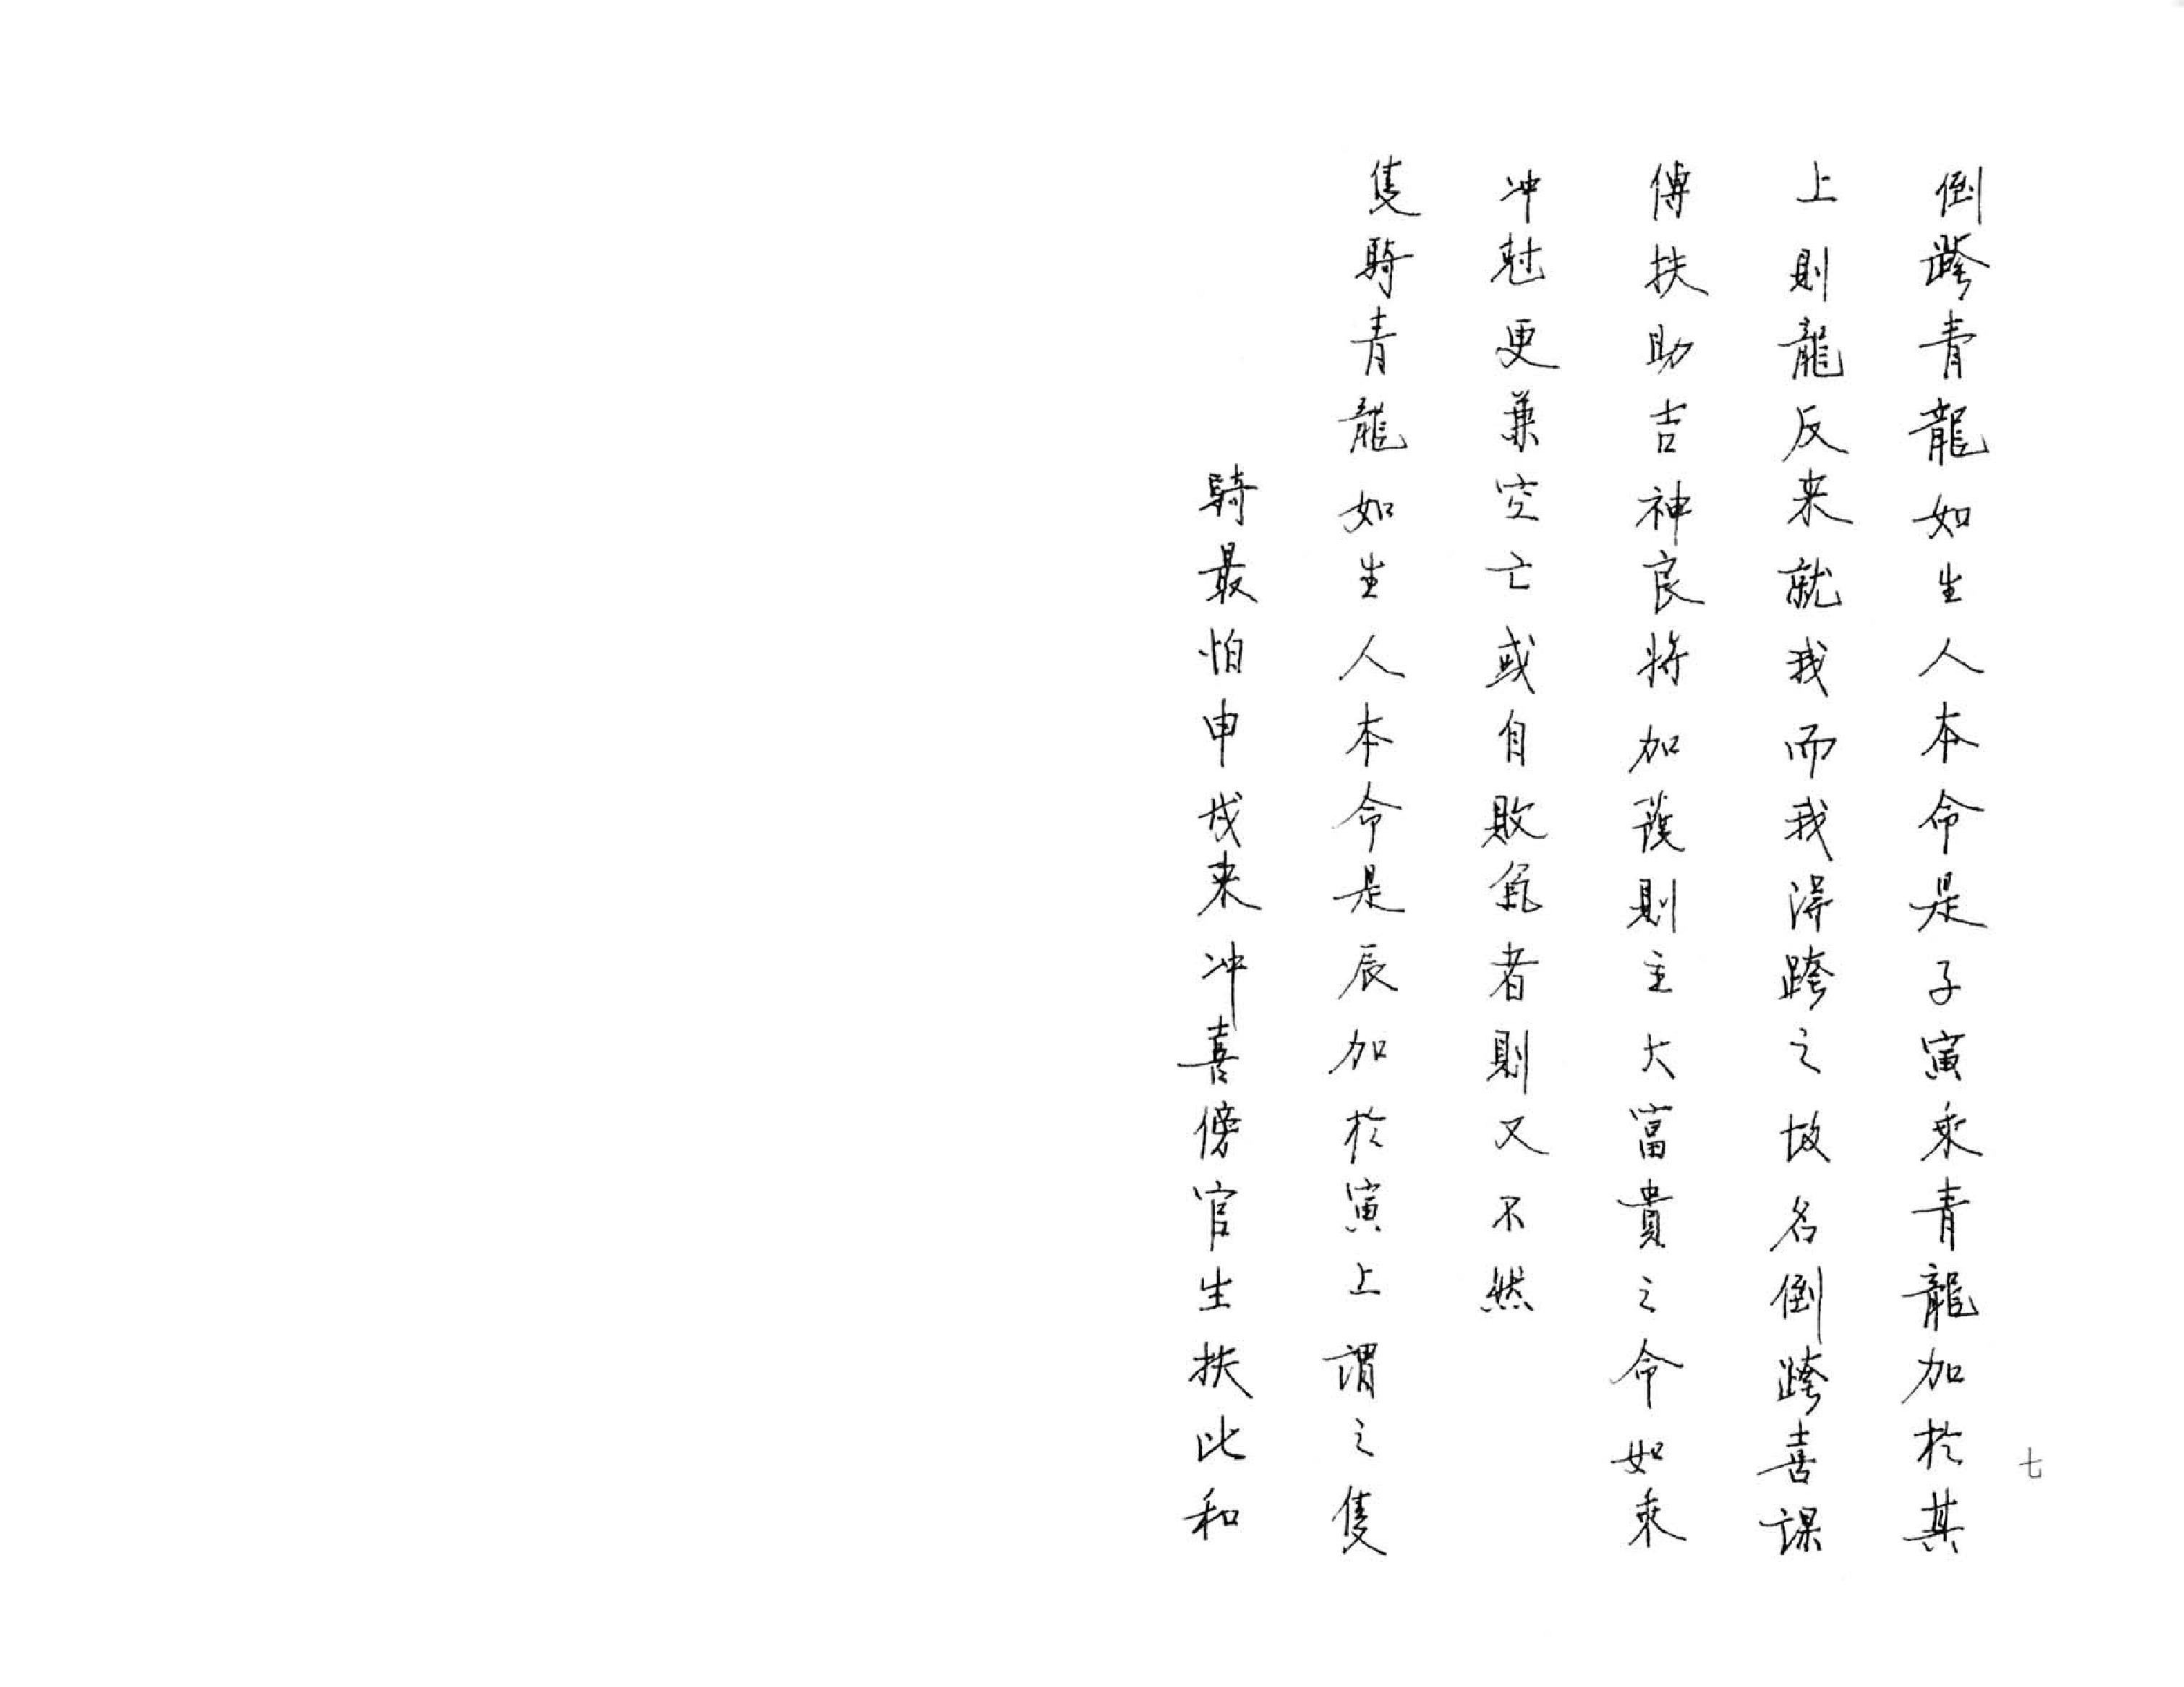 倒跨青龍如生人本命是子寅乘青龍加於其
上則龍反来就我而我得跨之故名倒跨喜課
傳扶助吉神良将加護則主大富貴之命如乘
冲尅更兼空亡或自敗氣者則又不然
隻騎青龍如生人本命是辰加於寅上謂之隻
騎最怕申戌来冲喜傍官生扶比和
七